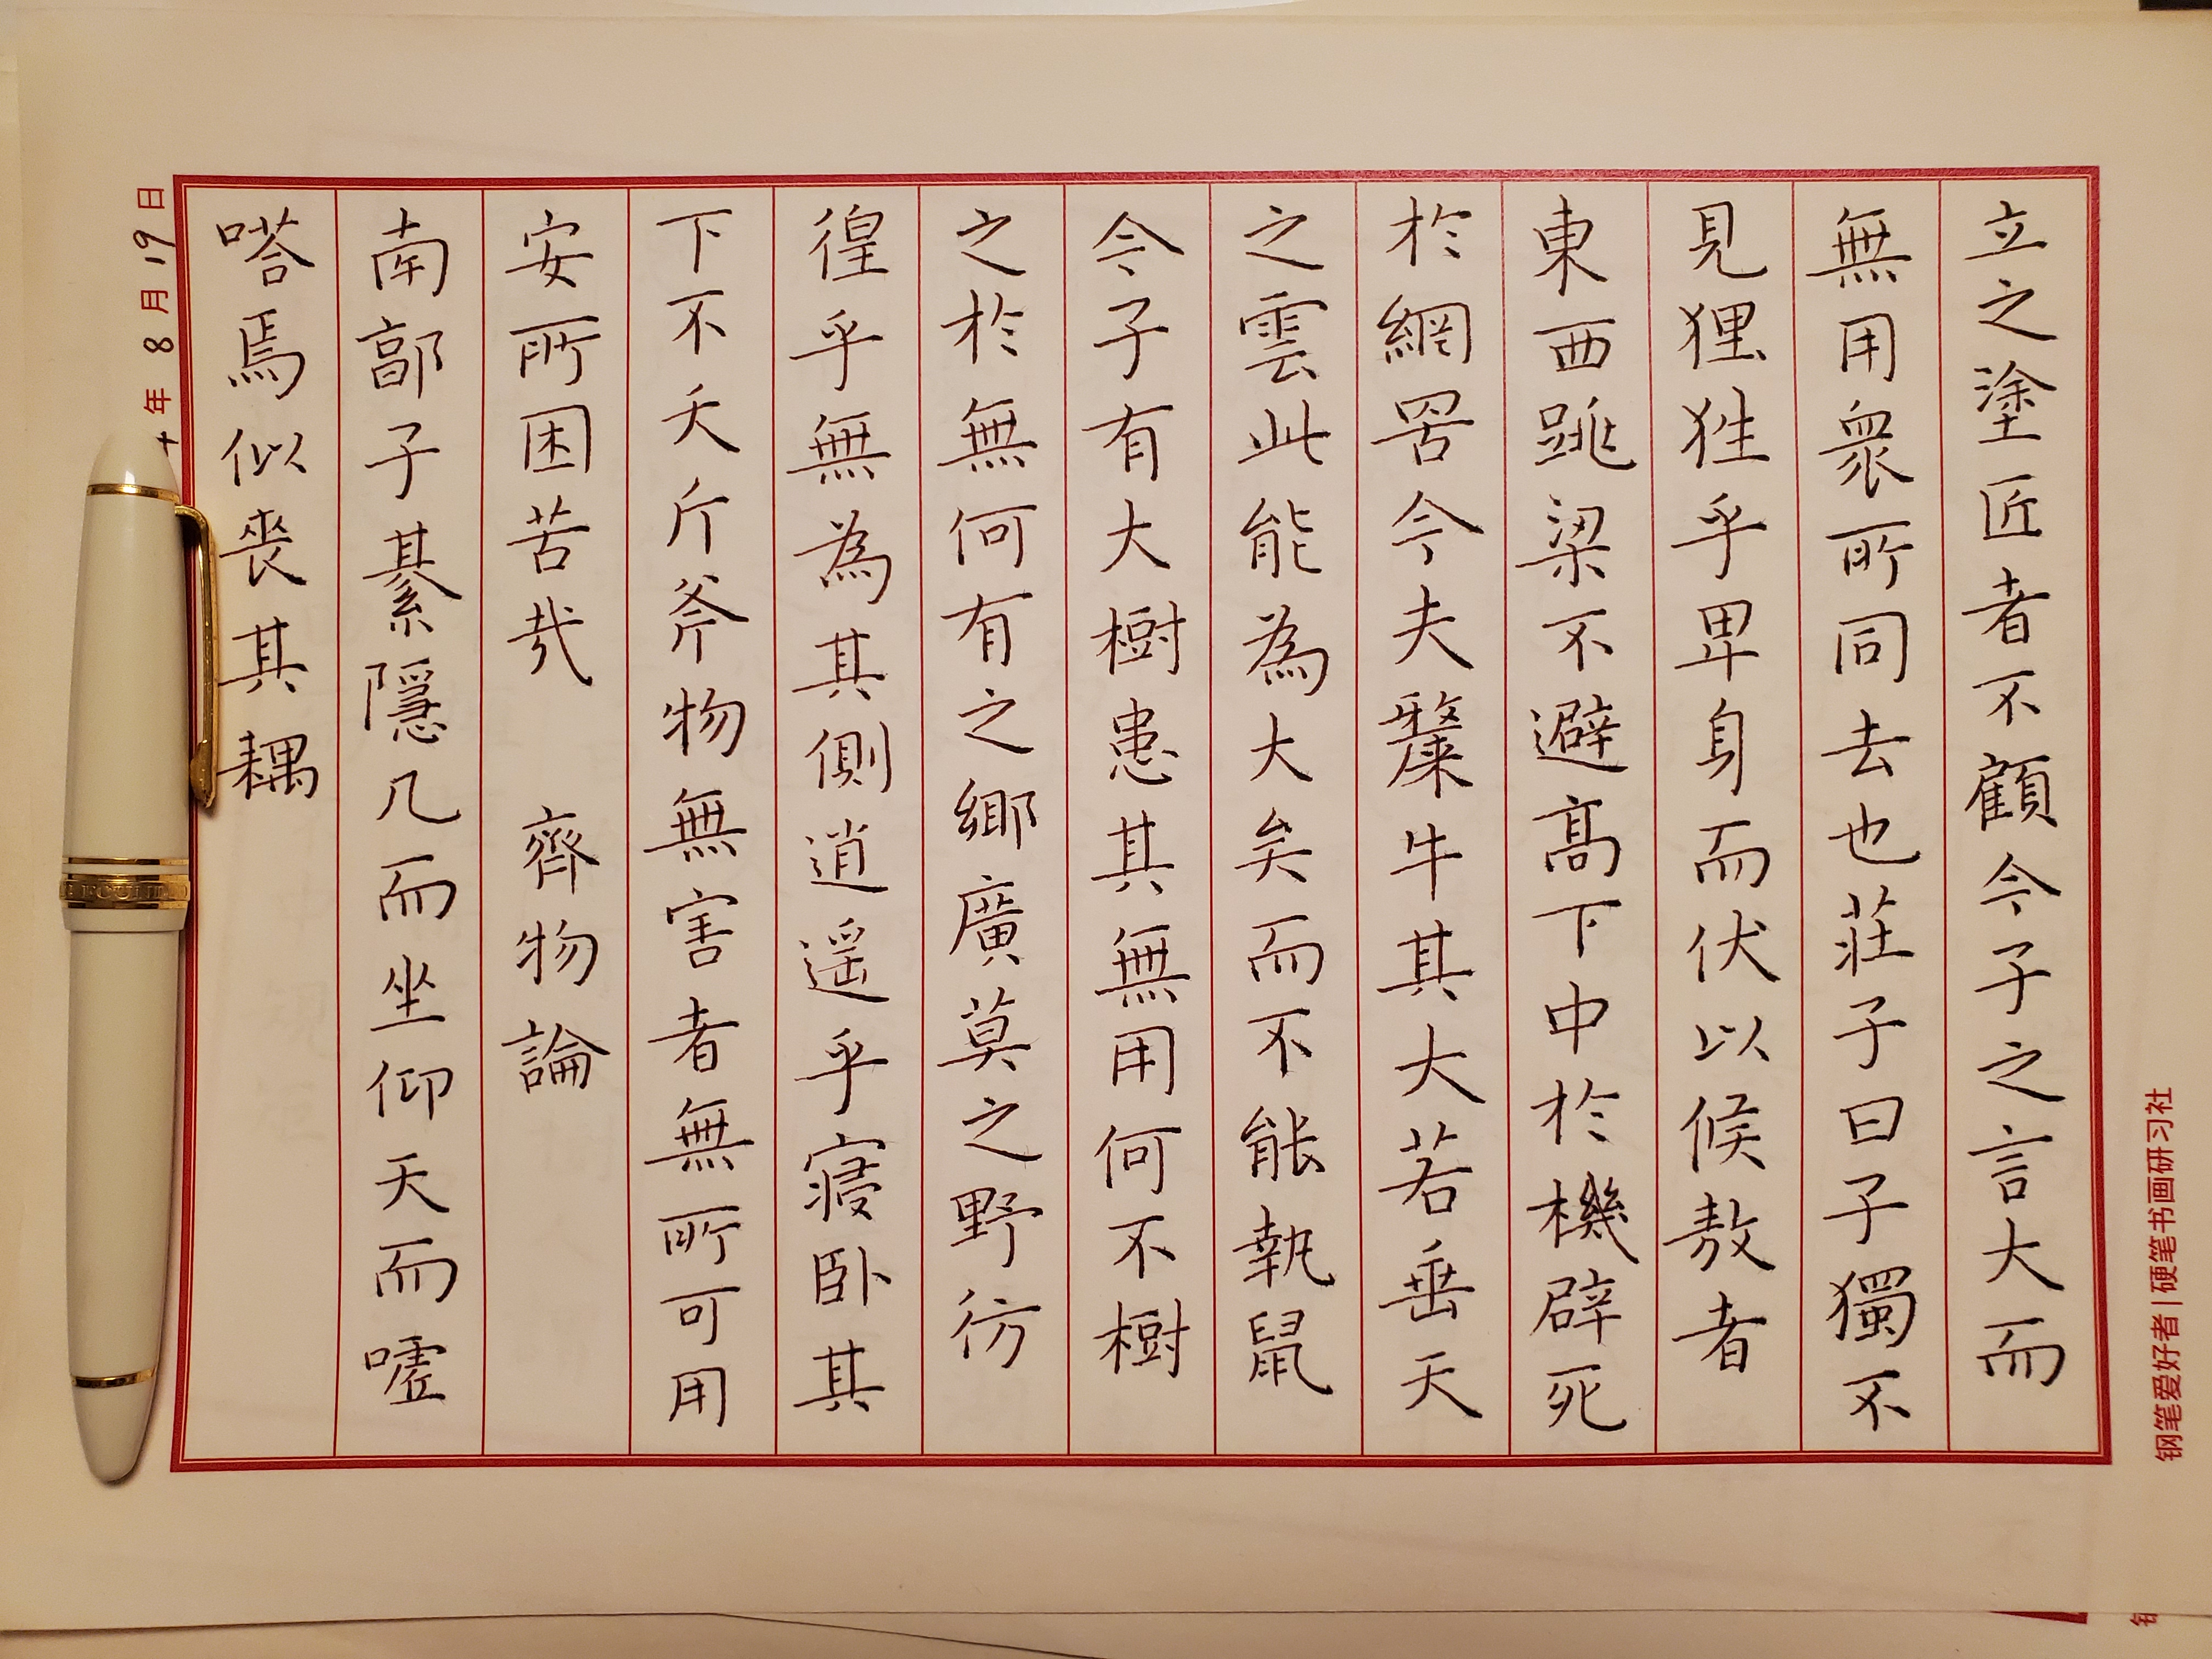 立之塗匠者不顧今子之言大而
無用眾所同去也莊子曰子獨不
見狸狌乎卑身而伏以候敖者
東西跳梁不避高下中於機辟死
於網罟今夫斄牛其大若垂天
之雲此能為大矣而不能執鼠
今子有大樹患其無用何不樹
之於無何有之鄉廣莫之野彷
徨乎無為其側逍遙乎寢臥其
下不夭斤斧物無害者無所可用
安所困苦哉 齊物論
南郭子綦隱几而坐仰天而噓
嗒焉似喪其耦
年 8 月 19 日
钢笔爱好者|硬笔书画研习社